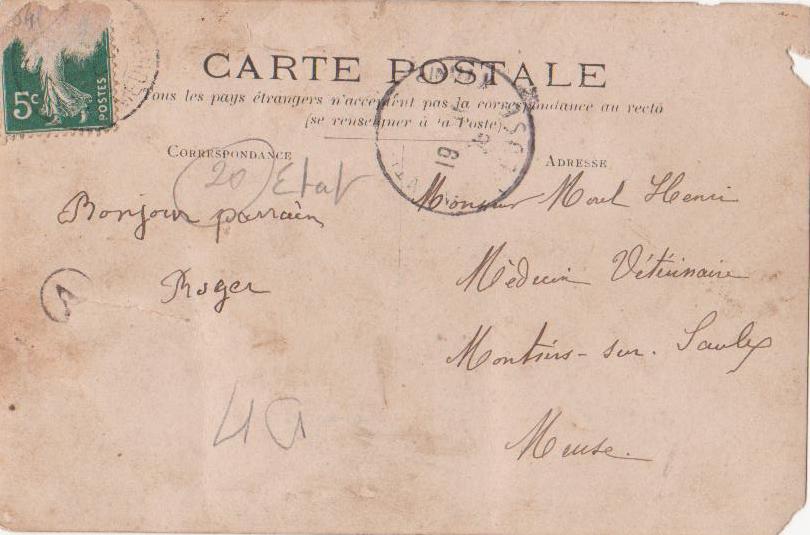 CARTE POSTALE
Tous les pays étrangers n'acceptent pas la correspondance au recto
(se renseigner à la Poste)
CORRESPONDANCE
ADRESSE
5c
POSTES
20 Etat
Bonjour parrain
Roger
Monsieur Morel Henri
Médecin Vétérinaire
Montiers-sur-Saulx
Meuse